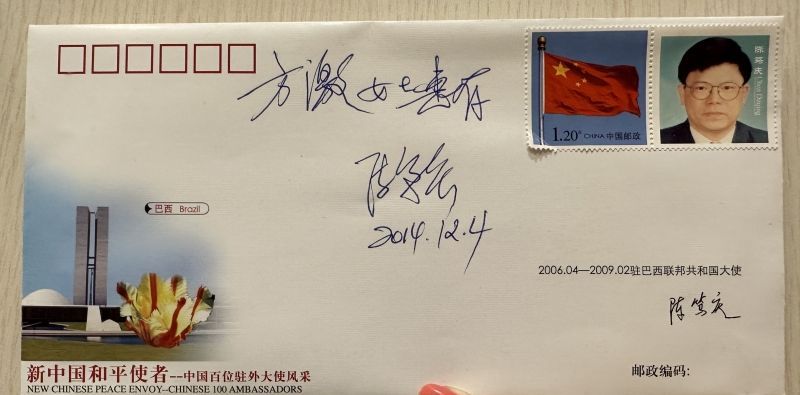 方激女士惠存
陈笃庆
2014.12.4
1.20元 CHINA 中国邮政
陈笃庆
Chen Duqing
巴西 Brazil
2006.04—2009.02驻巴西联邦共和国大使
陈笃庆
新中国和平使者--中国百位驻外大使风采
NEW CHINESE PEACE ENVOY--CHINESE 100 AMBASSADORS
邮政编码: